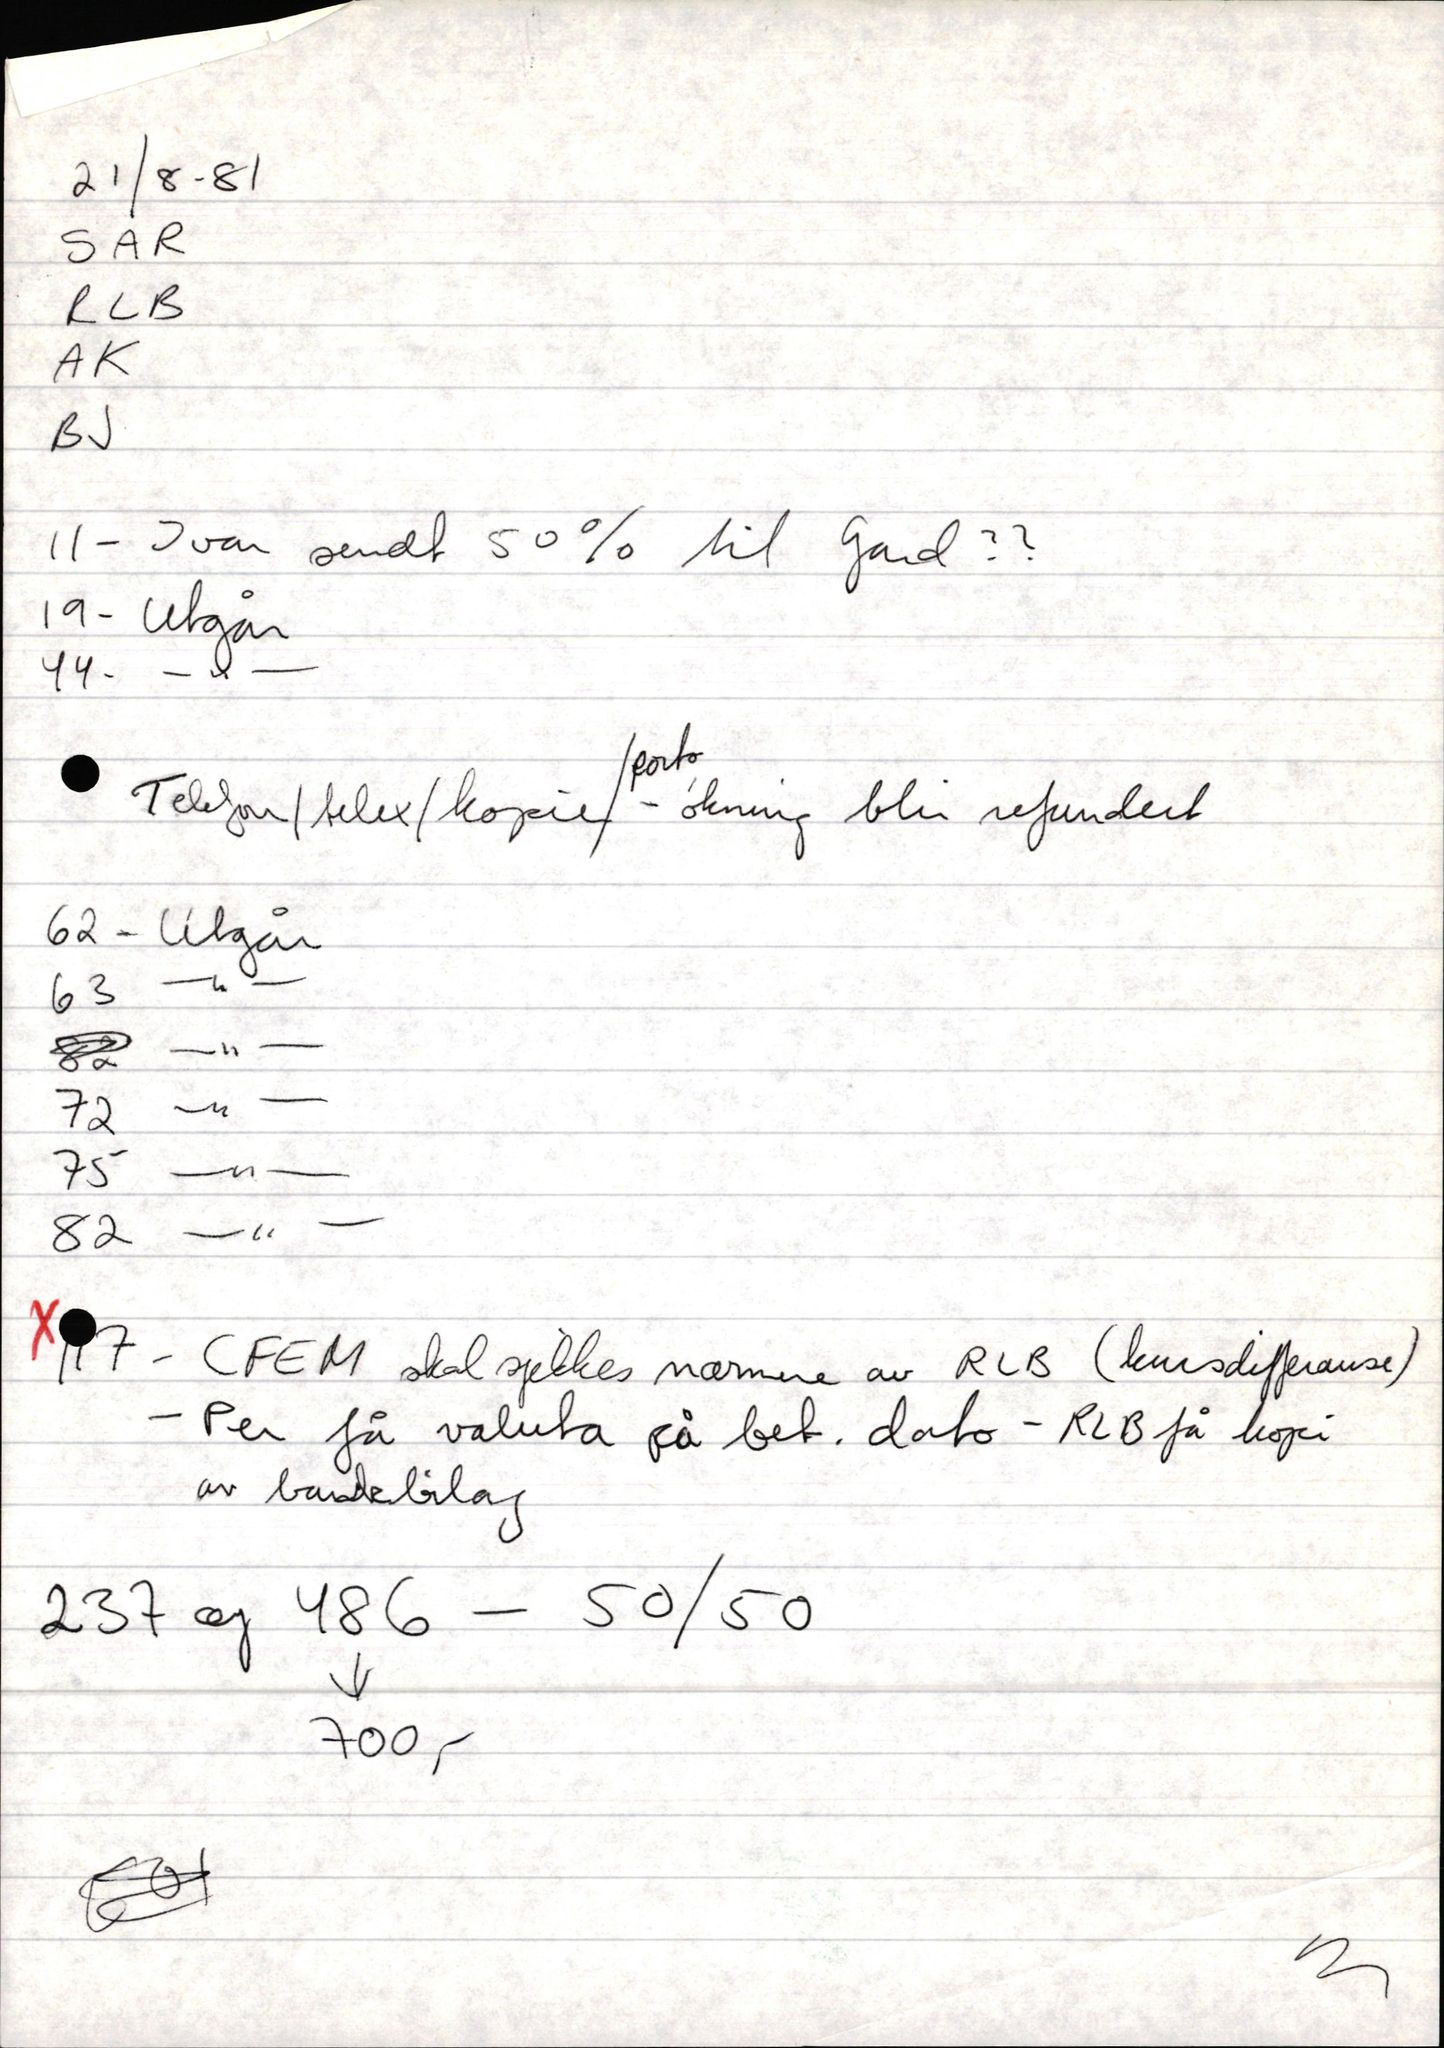 21/8-81
SAR
RLB
AK
BJ
11 - Ivar sendt 50% til Gard??
19 - Utgår
44 - — " —
Telefon/telex/kopier/porto - økning blir refundert
62 - Utgår
63 — " —
82 — " —
72 — " —
75 — " —
82 — " —
X 117 - CFEM skal sjekkes nærmere av RLB (kursdifferanse)
- Per få valuta på bet. dato - RLB få kopi
av bankbilag
237 og 486 — 50/50
↓
700,-